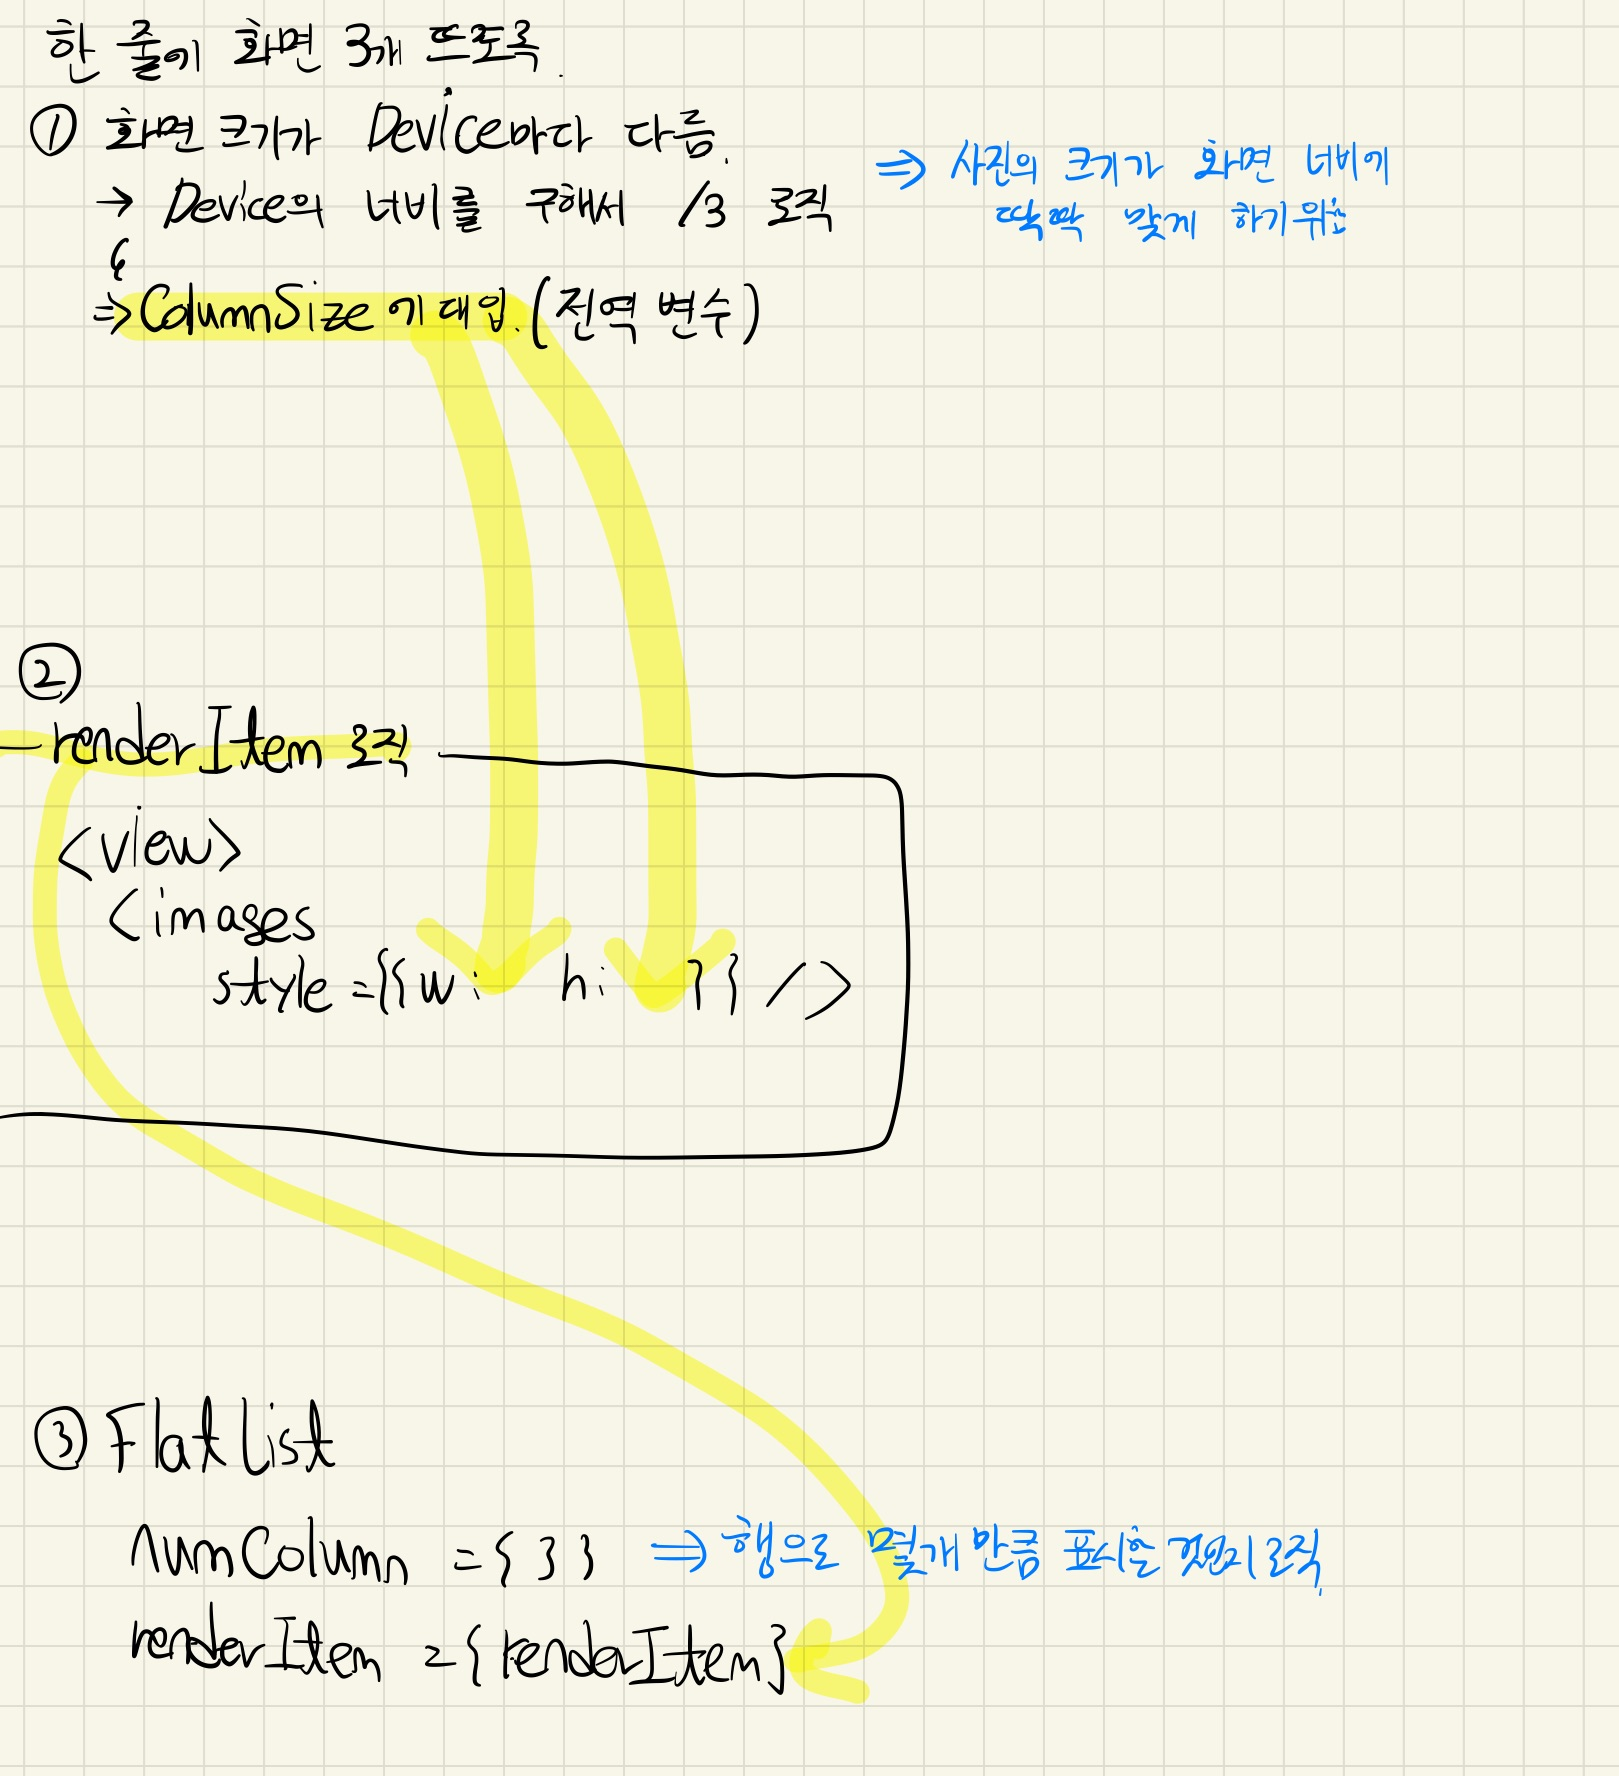 한 줄에 화면 3개 뜨도록.
① 화면 크기가 Device마다 다름.
→ Device의 너비를 구해서 /3 로직
⇒ 사진의 크기가 화면 너비에
딱딱 맞게 하기위함
⇒ ColumnSize 에 대입. (전역 변수)
②
renderItem 로직
<view>
<images
style={{w: h: }} />
③ Flat list
numColumn = { 3 }
⇒ 행으로 몇개 만큼 표시할 것인지 로직.
renderItem = { renderItem}